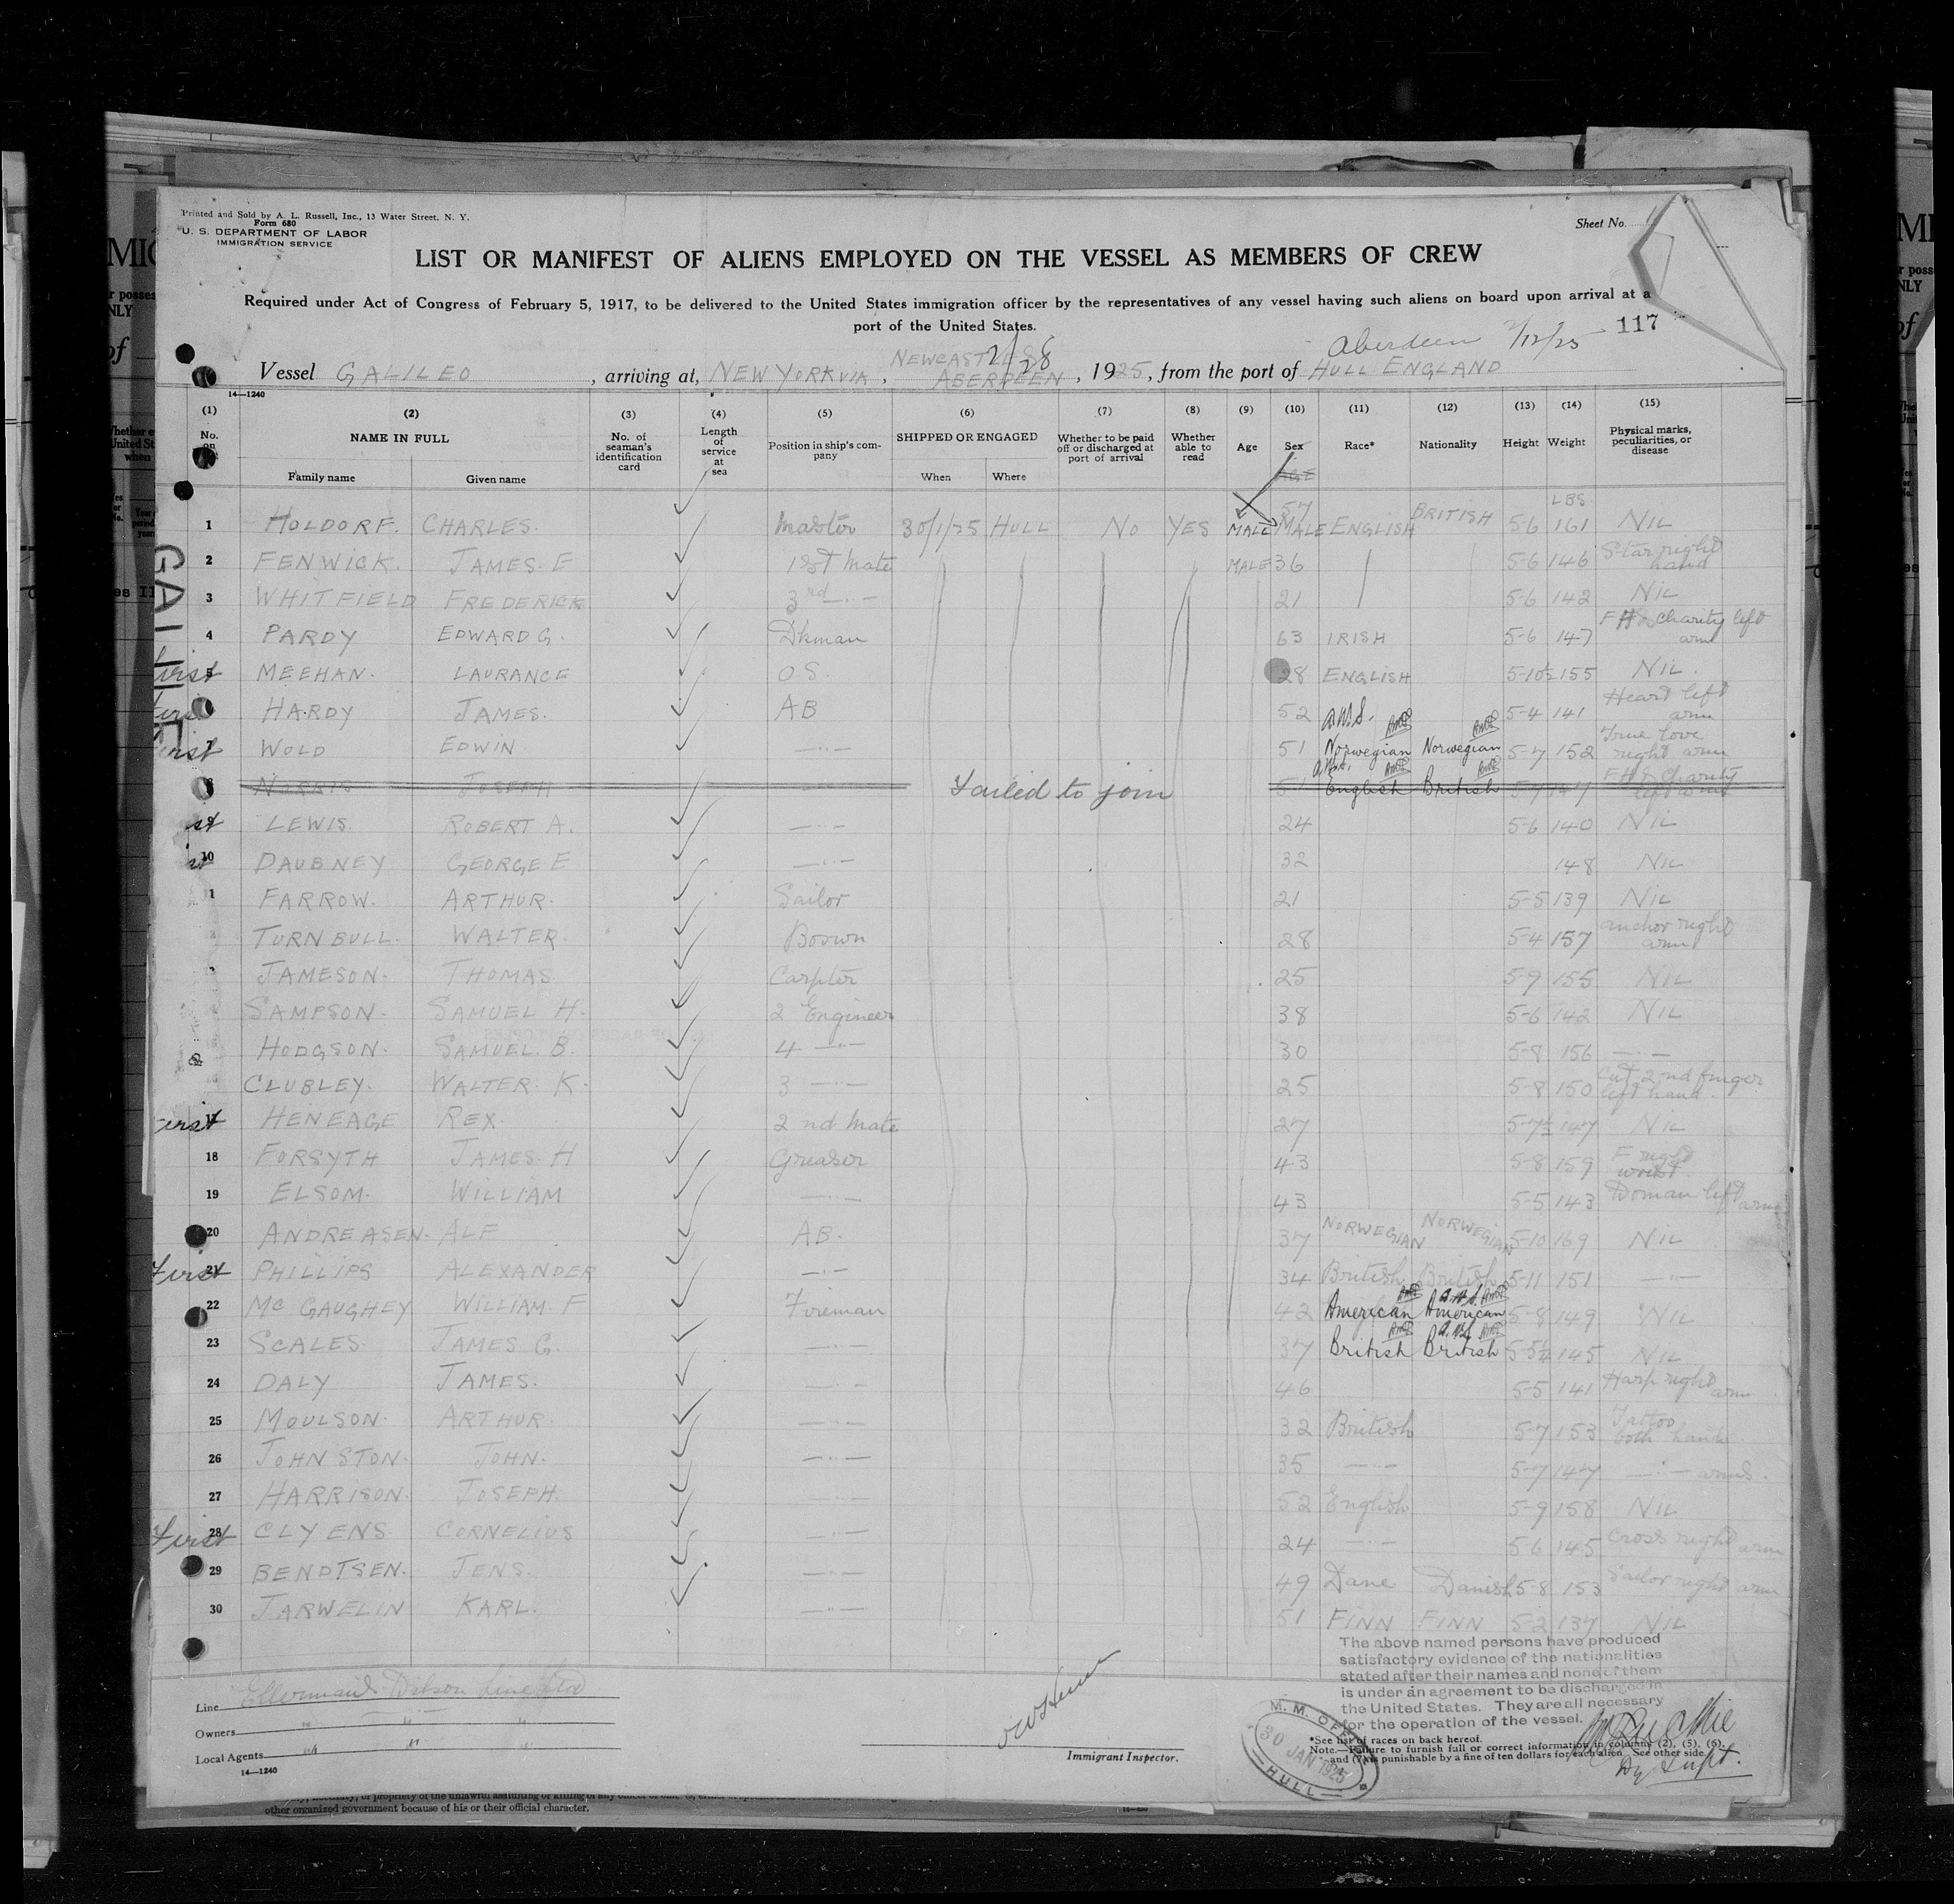 Printed and Sold by A. L. Russell, Inc., 13 Water Street, N. Y.
Form 680
U. S. DEPARTMENT OF LABOR
IMMIGRATION SERVICE
Sheet No.
LIST OR MANIFEST OF ALIENS EMPLOYED ON THE VESSEL AS MEMBERS OF CREW
Required under Act of Congress of February 5, 1917, to be delivered to the United States immigration officer by the representatives of any vessel having such aliens on board upon arrival at a
port of the United States.
117
Aberdeen 2/12/25
NEWCASTLE 2/28
Vessel GALILEO, arriving at, NEW YORK VIA, ABERDEEN, 1925, from the port of HULL ENGLAND
14—1240
(1) (2) (3) (4) (5) (6) (7) (8) (9) (10) (11) (12) (13) (14) (15)
No. on NAME IN FULL No. of seaman's identification card Length of service at sea Position in ship's company SHIPPED OR ENGAGED Whether to be paid off or discharged at port of arrival Whether able to read Age Sex Race* Nationality Height Weight Physical marks, peculiarities, or disease
Family name Given name When Where
AGE
LBS
1 HOLDORF. CHARLES. Master 30/1/25 HULL NO YES MALE 57 MALE ENGLISH BRITISH 5-6 161 NIL
2 FENWICK. JAMES. E 1st Mate MALE 36 5-6 146 Star right hand
3 WHITFIELD FREDERICK 3rd —"— 21 5-6 142 NIL
4 PARDY EDWARD G. Dkman 63 IRISH 5-6 147 F H & Charity left arm
First 5 MEEHAN. LAURANCE O.S. 28 ENGLISH 5-10½ 155 NIL.
HARDY JAMES. AB 52 5-4 141 Heart left arm
7 WOLD EDWIN —"— 51 Norwegian Norwegian 5-7 152 True love right arm
8 NORRIS JOSEPH Failed to join 51 English British 5-7 147 F H & Charity left arm
9 LEWIS. ROBERT A. —"— 24 5-6 140 NIL
10 DAUBNEY GEORGE E —"— 32 148 NIL
1 FARROW. ARTHUR. Sailor 21 5-5 139 NIL
TURNBULL. WALTER. Boswn 28 5-4 157 anchor right arm
JAMESON. THOMAS Carpter 25 5-9 155 NIL
SAMPSON. SAMUEL H. 2 Engineer 38 5-6 142 NIL
HODGSON. SAMUEL. B. 4 —"— 30 5-8 156 —"—
CLUBLEY. WALTER. K. 3 —"— 25 5-8 150 Cut 2nd finger left hand
First 17 HENEAGE REX. 2nd Mate 27 5-7½ 147 NIL
18 FORSYTH JAMES H Greaser 43 5-8 159 F right wrist
19 ELSOM. WILLIAM —"— 43 5-5 143 Woman left arm
20 ANDREASEN. ALF AB. 37 NORWEGIAN NORWEGIAN 5-10 169 NIL
First 21 PHILLIPS ALEXANDER —"— 34 British British 5-11 151 —"—
22 MC GAUGHEY WILLIAM. F Fireman 42 American American 5-8 149 NIL
23 SCALES. JAMES G. —"— 37 British British 5-5½ 145 NIL
24 DALY JAMES. —"— 46 5-5 141 Harp right arm
25 MOULSON. ARTHUR. —"— 32 British 5-7 153 Tattoo both hands
26 JOHNSTON. JOHN. —"— 35 —"— 5-7 147 —"— arms.
27 HARRISON. JOSEPH. —"— 52 English 5-9 158 NIL
First 28 CLYENS CORNELIUS —"— 24 —"— 5-6 145 Cross right arm
29 BENDTSEN. JENS. —"— 49 Dane Danish 5-8 153 Sailor right arm
30 JARWELIN KARL. —"— 51 FINN FINN 5-2 137 NIL
GALILEO
The above named persons have produced
satisfactory evidence of the nationalities
stated after their names and none of them
is under an agreement to be discharged in
the United States. They are all necessary
for the operation of the vessel.
Line Ellerman's Wilson Line Ltd
Owners " " "
Local Agents " " "
14—1240
Immigrant Inspector.
M. M. OFFICE
30 JAN 1925
HULL
*See list of races on back hereof.
Note.—Failure to furnish full or correct information in columns (2), (5), (6),
and (7) is punishable by a fine of ten dollars for each alien. See other side.
Dy Supt.
other organized government because of his or their official character.